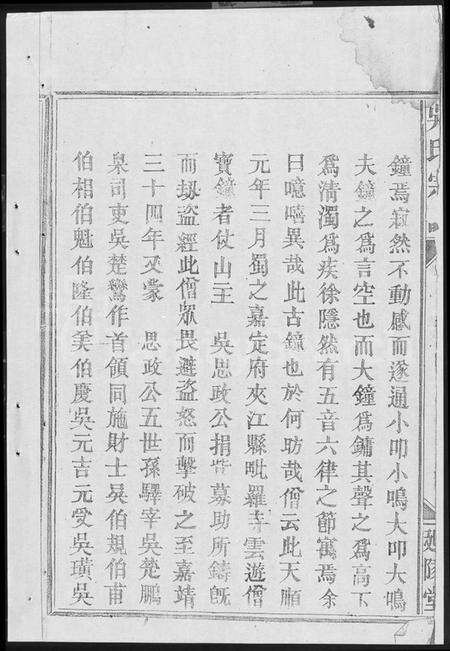 吳氏宗
鐘焉寂然不動感而遂通小叩小鳴大叩大鳴
夫鐘之爲言空也而大鐘爲鏞其聲之爲高下
爲淸濁爲疾徐隱然有五音六律之節寓焉余
曰噫嘻異哉此古鐘也於何昉哉僧云此天順
元年三月蜀之嘉定府夾江縣毗羅寺雲遊僧
寶鐘者仗山主 吳思政公捐貲募助所鑄旣
而刧盜經此僧眾畏避盜怒而擊破之至嘉靖
三十四年又蒙 思政公五世孫驛宰吳梵鵬
臬司吏吳楚鸞作首領同施財士吳伯規伯甫
伯相伯魁伯隆伯美伯慶吳元吉元受吳璜吳
延陵堂